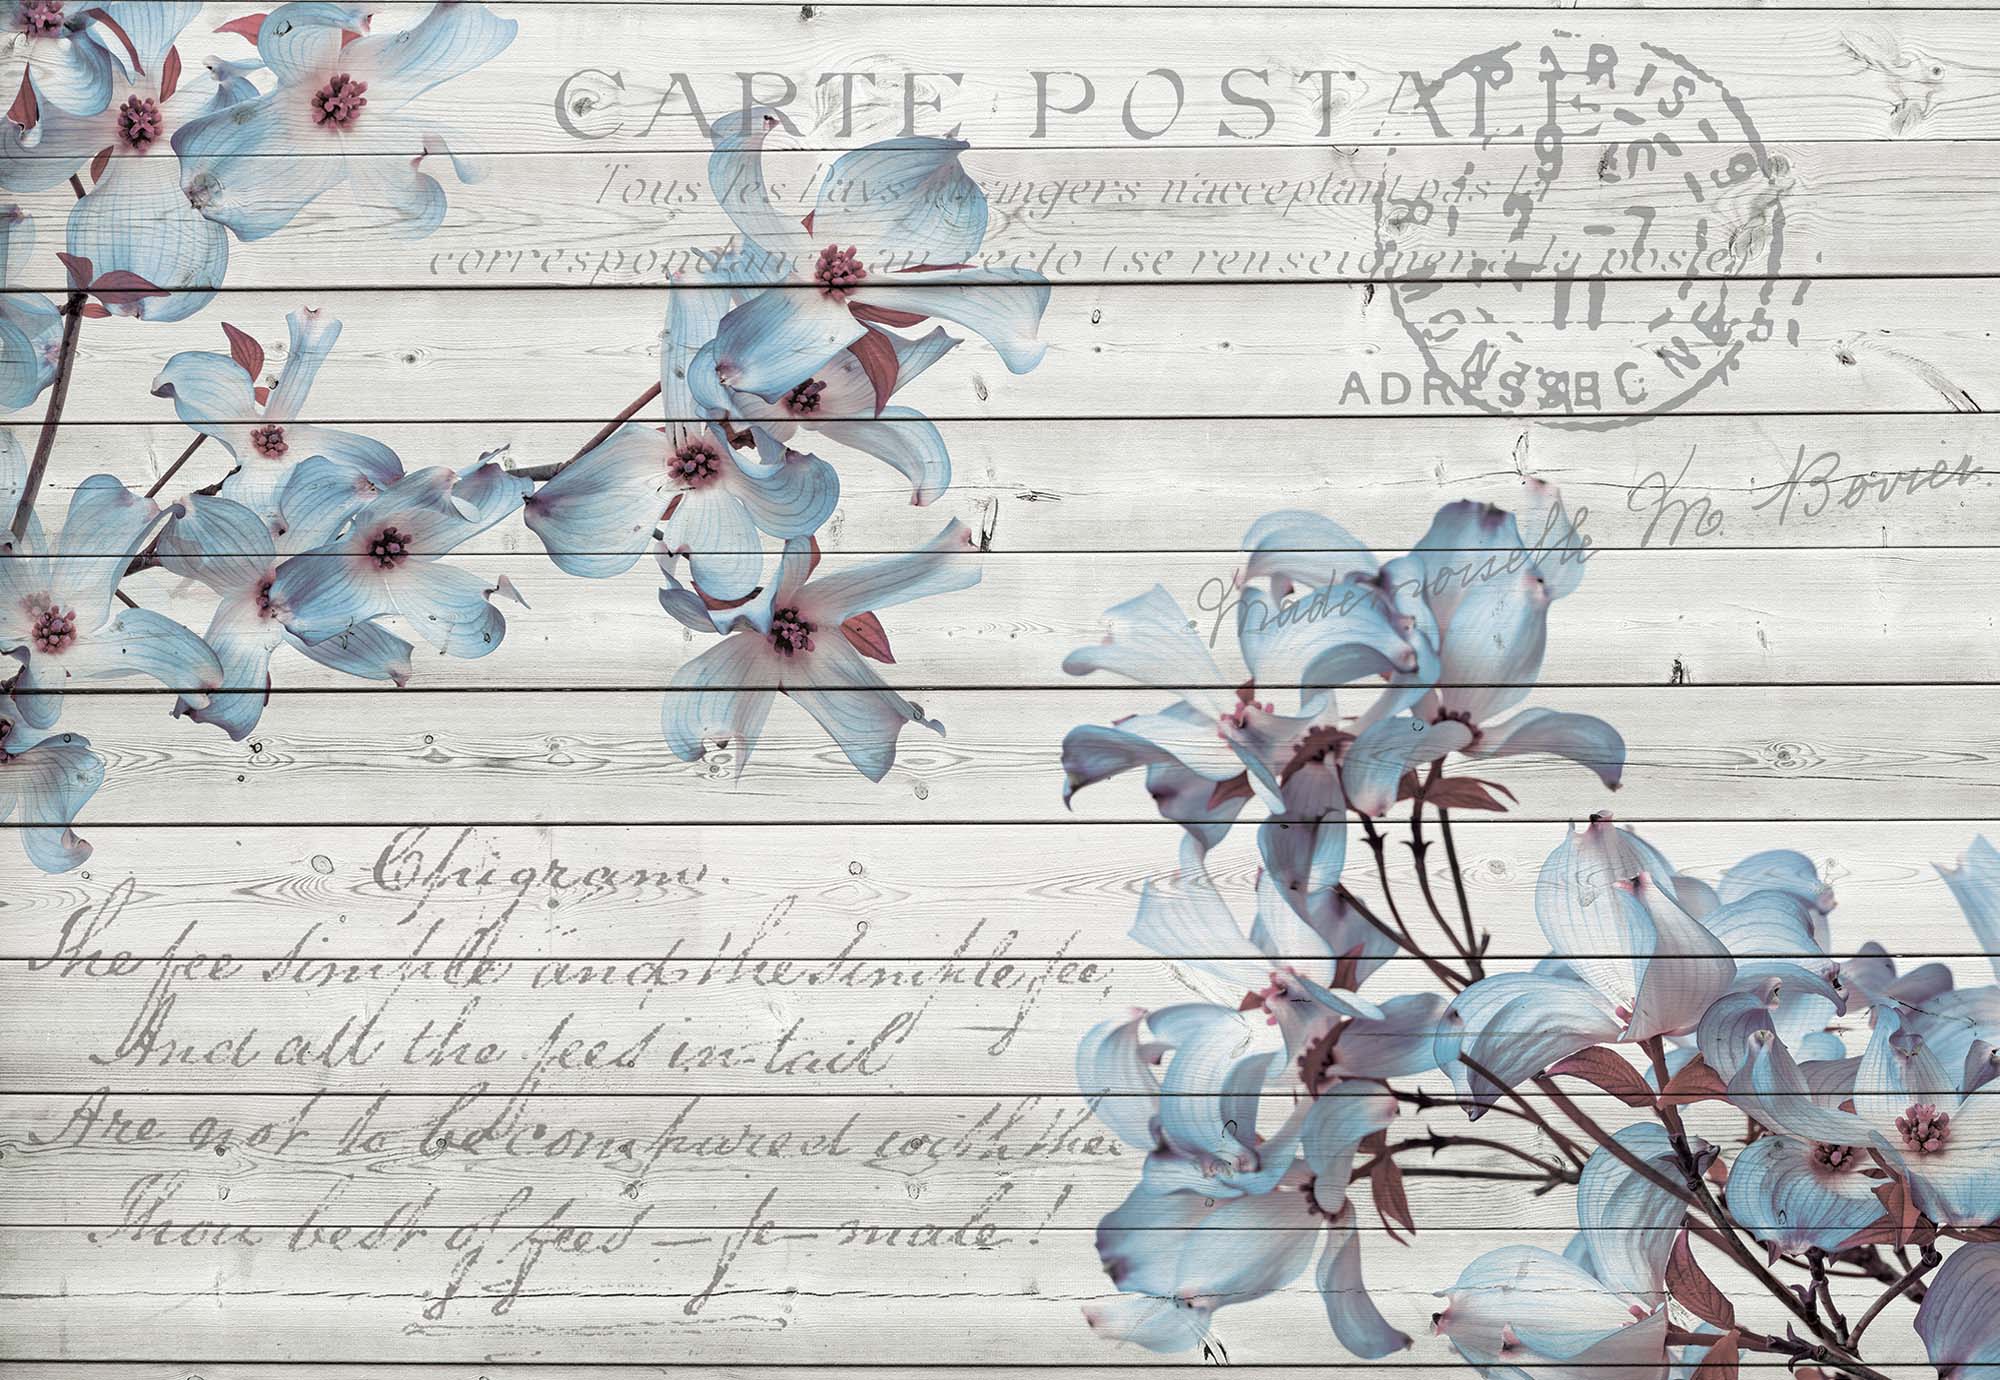 CARTE POSTALE
Tous les Pays étrangers n'acceptant pas la
correspondance au recto (se renseigner à la poste)
PARIS
7 -7
11
ADRESSE
Mademoiselle M. Bovier.
Epigram.
The fee simple and the simple fee,
And all the fees in tail
Are not to be compared with thee
Thou best of fees — fe-male!